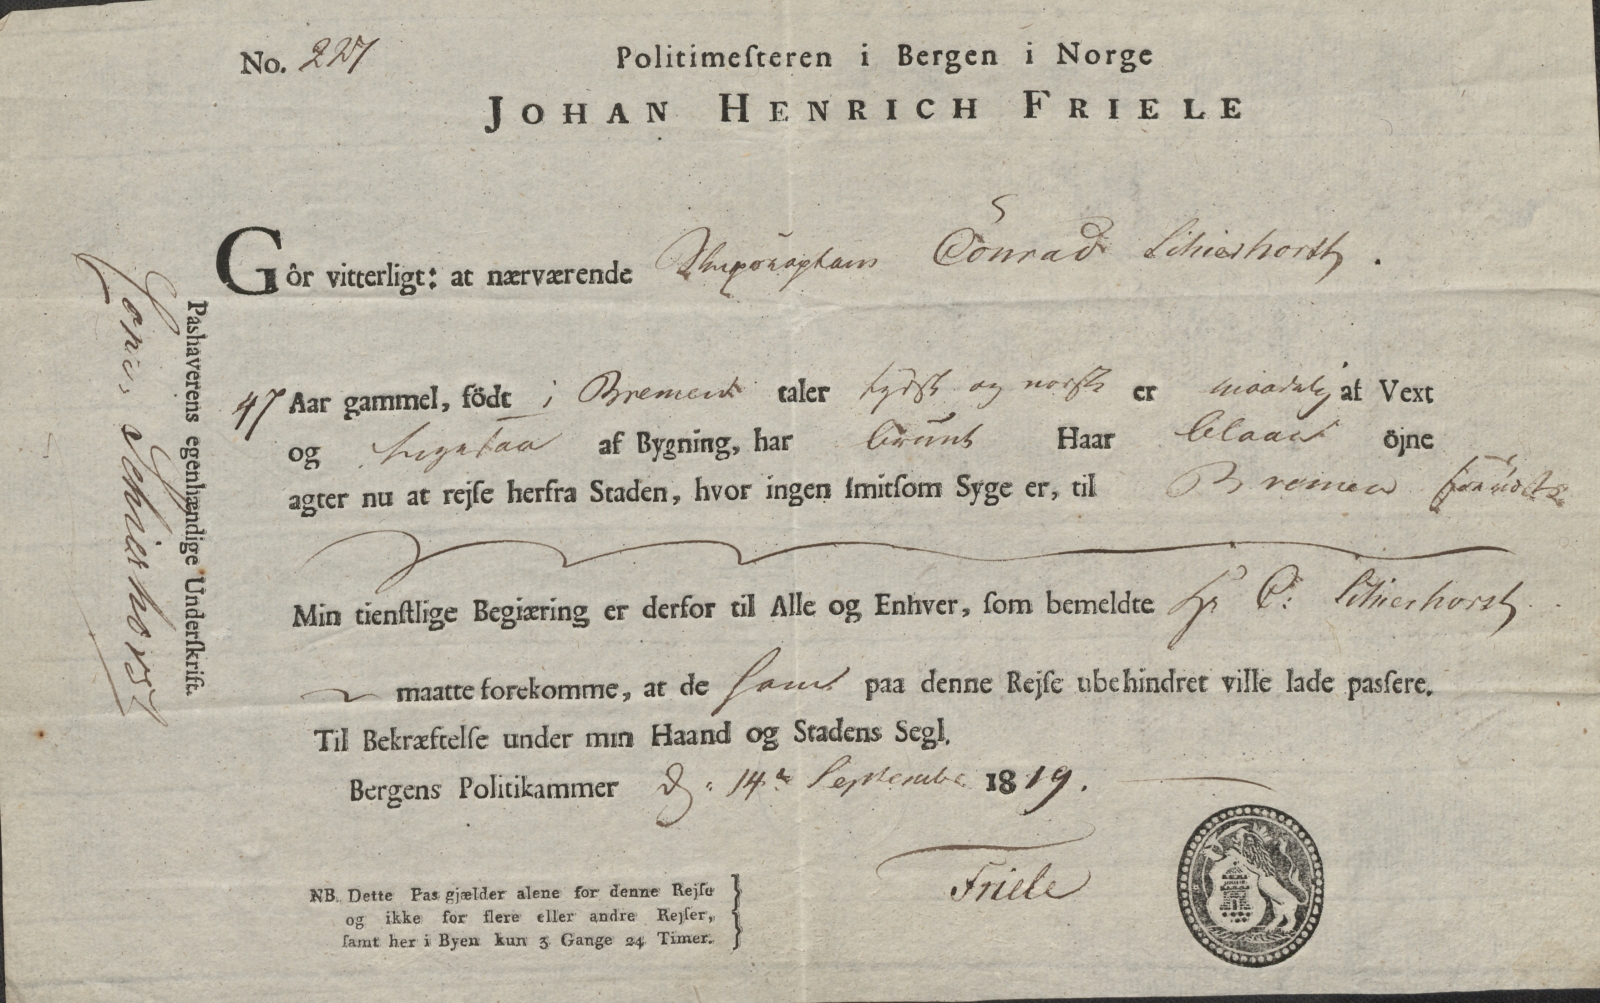 No. 227
Politimeſteren i Bergen i Norge
JOHAN HENRICH FRIELE
Gôr vitterligt: at nærværende Conrad Schierhorst.
47 Aar gammel, födt i Bremen taler tydsk og norsk er maadelig af Vext
og af Bygning, har bruunt Haar blaae öjne
agter nu at rejſe herfra Staden, hvor ingen ſmitſom Syge er, til Bremen
Min tienſtlige Begiæring er derfor til Alle og Enhver, ſom bemeldte Hr C: Schierhorst
maatte forekomme, at de ham paa denne Rejſe ubehindret ville lade paſſere.
Til Bekræftelſe under min Haand og Stadens Segl.
Bergens Politikammer d: 14de September 1819.
Friele
NB. Dette Pas gjælder alene for denne Rejſe
og ikke for flere eller andre Rejſer,
ſamt her i Byen kun 3 Gange 24 Timer.
Pashaverens egenhændige Underſkrift.
Conr. Schierhorst